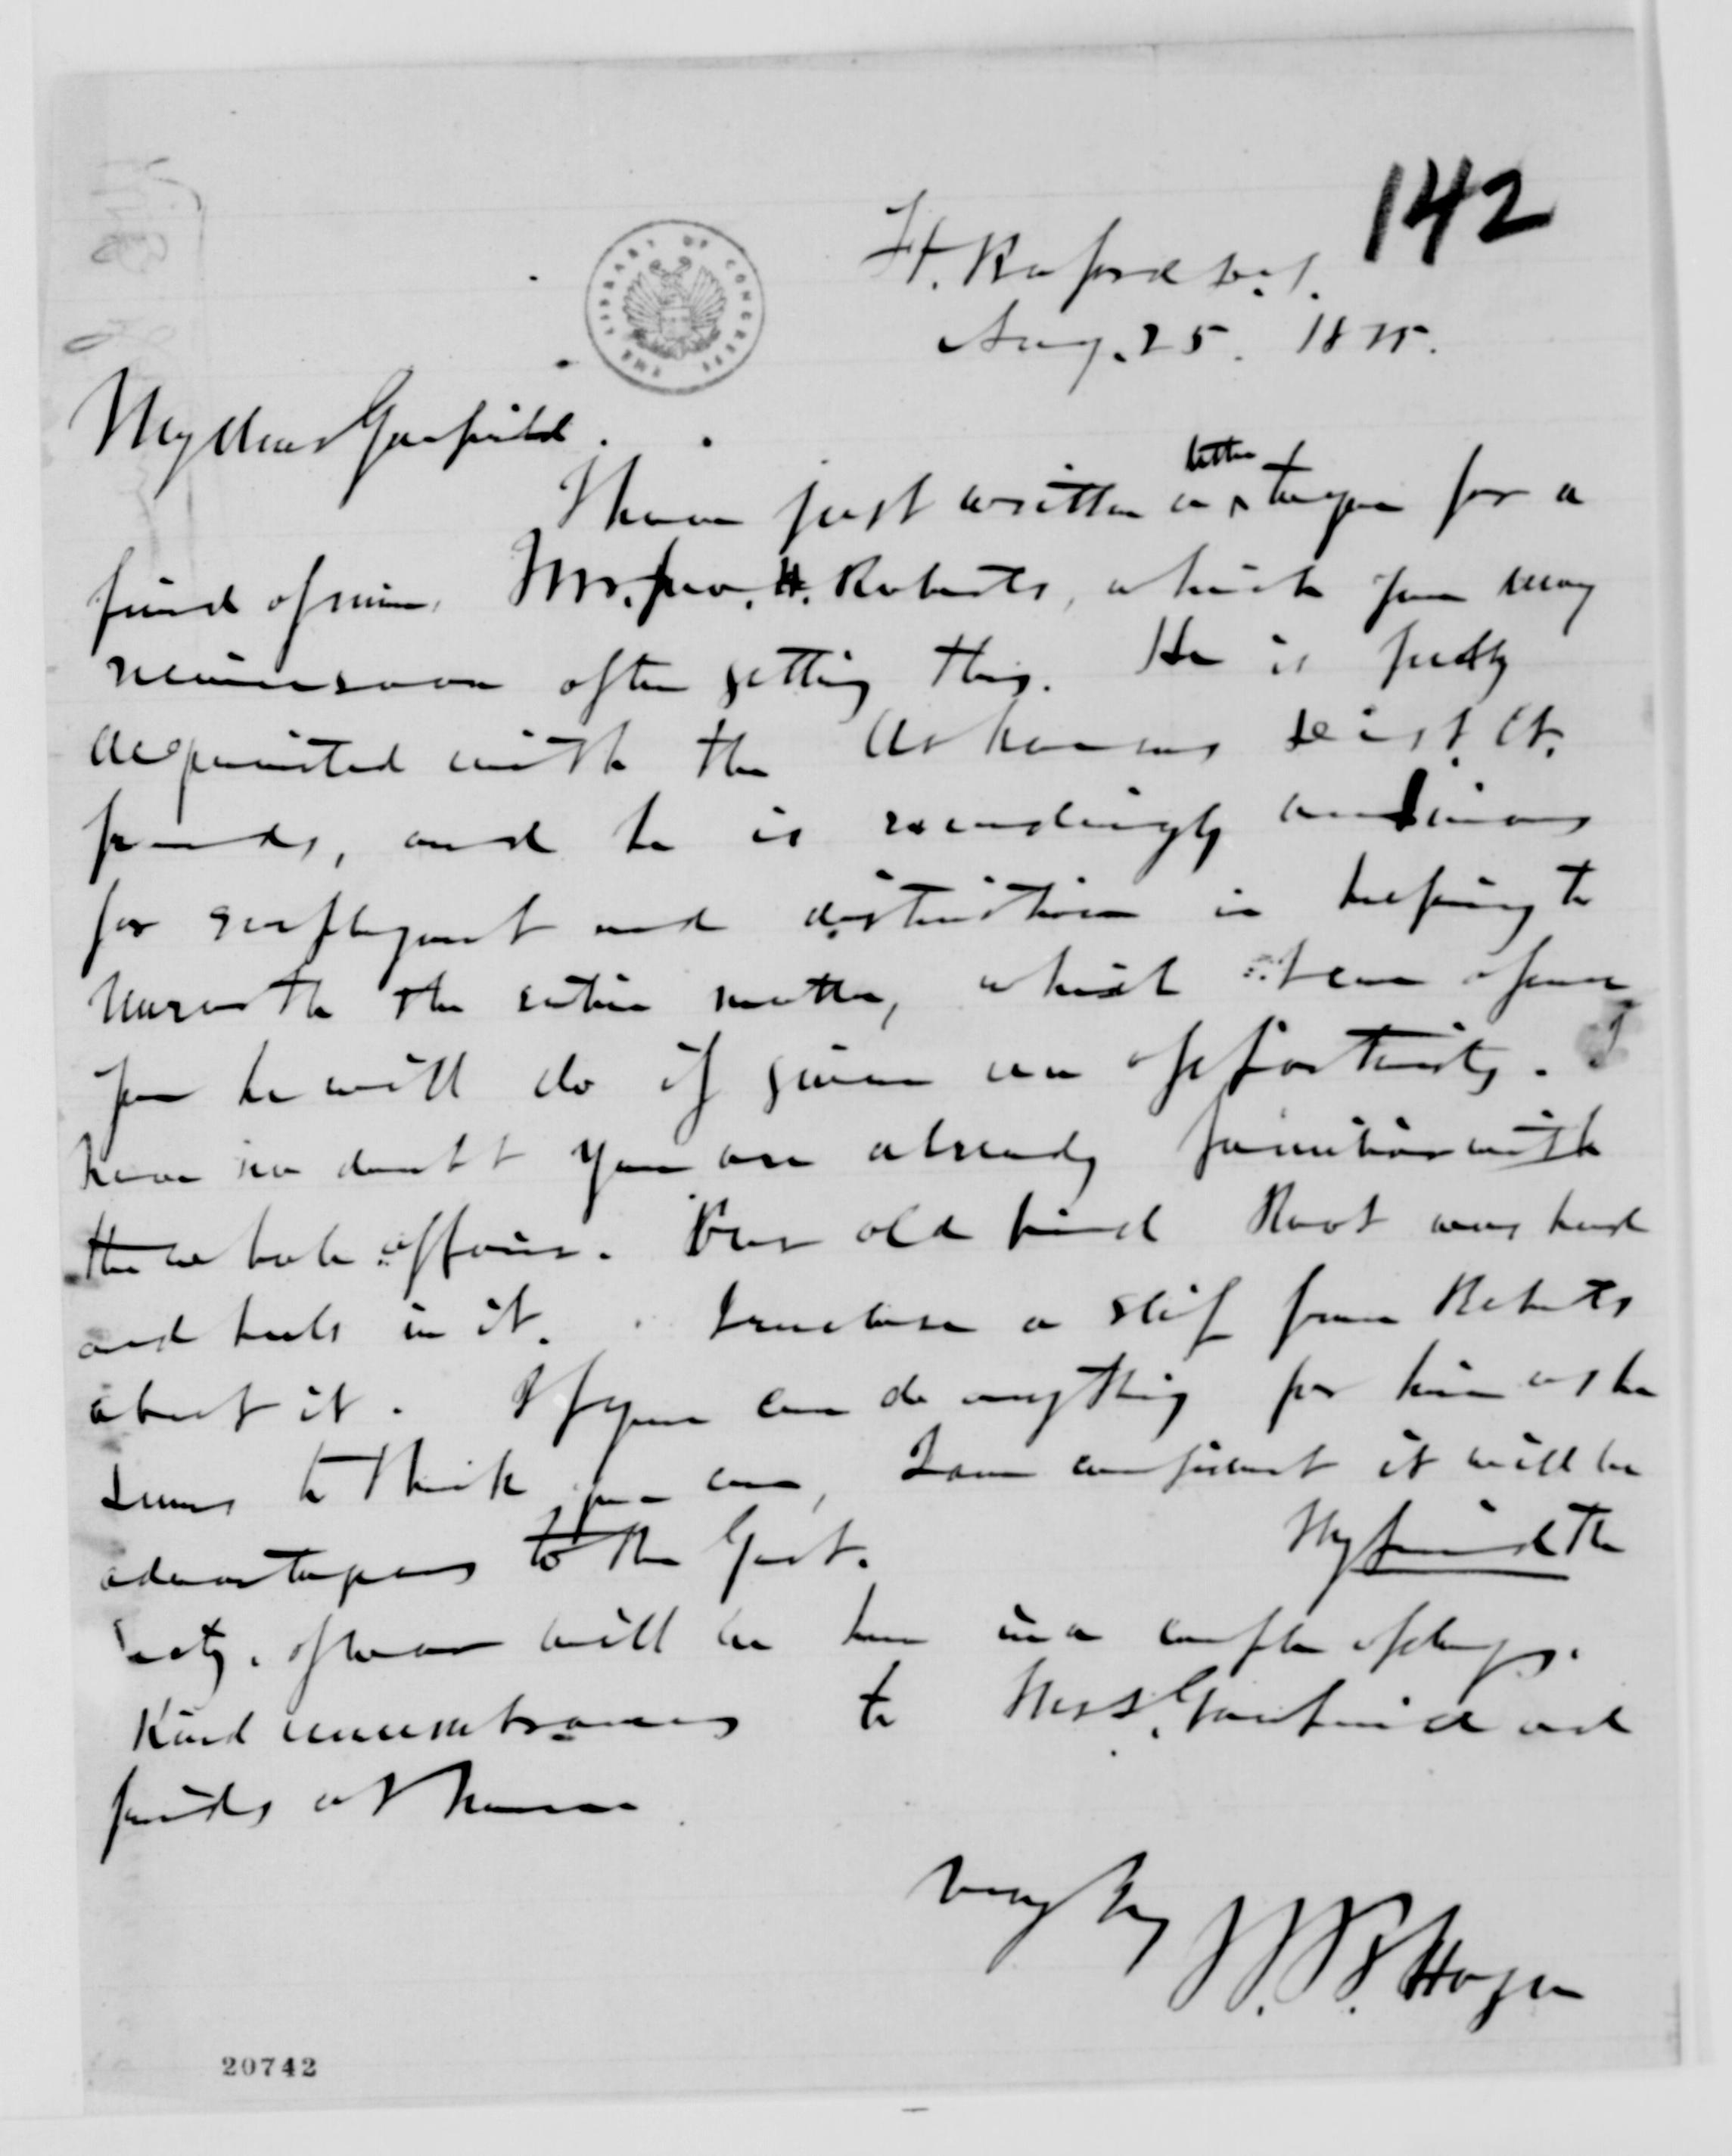 142
Ft. Buford D.T.
Aug. 25. 1875.
THE LIBRARY OF CONGRESS
My dear Garfield.
I have just written a letter to you for a
friend of mine, Mr. Jno. H. Roberts, which you may
receive soon after getting this. He is fully
acquainted with the Arkansas Dist. Ct.
frauds, and he is exceedingly anxious
for employment and distinction in helping to
unearth the entire matter, which I can assure
you he will do if given an opportunity. I
have no doubt you are already familiar with
the whole affair. Our old friend Root was head
and heels in it. I enclose a slip from Roberts
about it. If you can do anything for him as he
seems to think you can, I am confident it will be
advantageous to the Govt. My friend the
Secty. of war will be here in a couple of days.
Kind remembrances to Mrs. Garfield and
friends at home.
Very truly
W. B. Hazen
20742